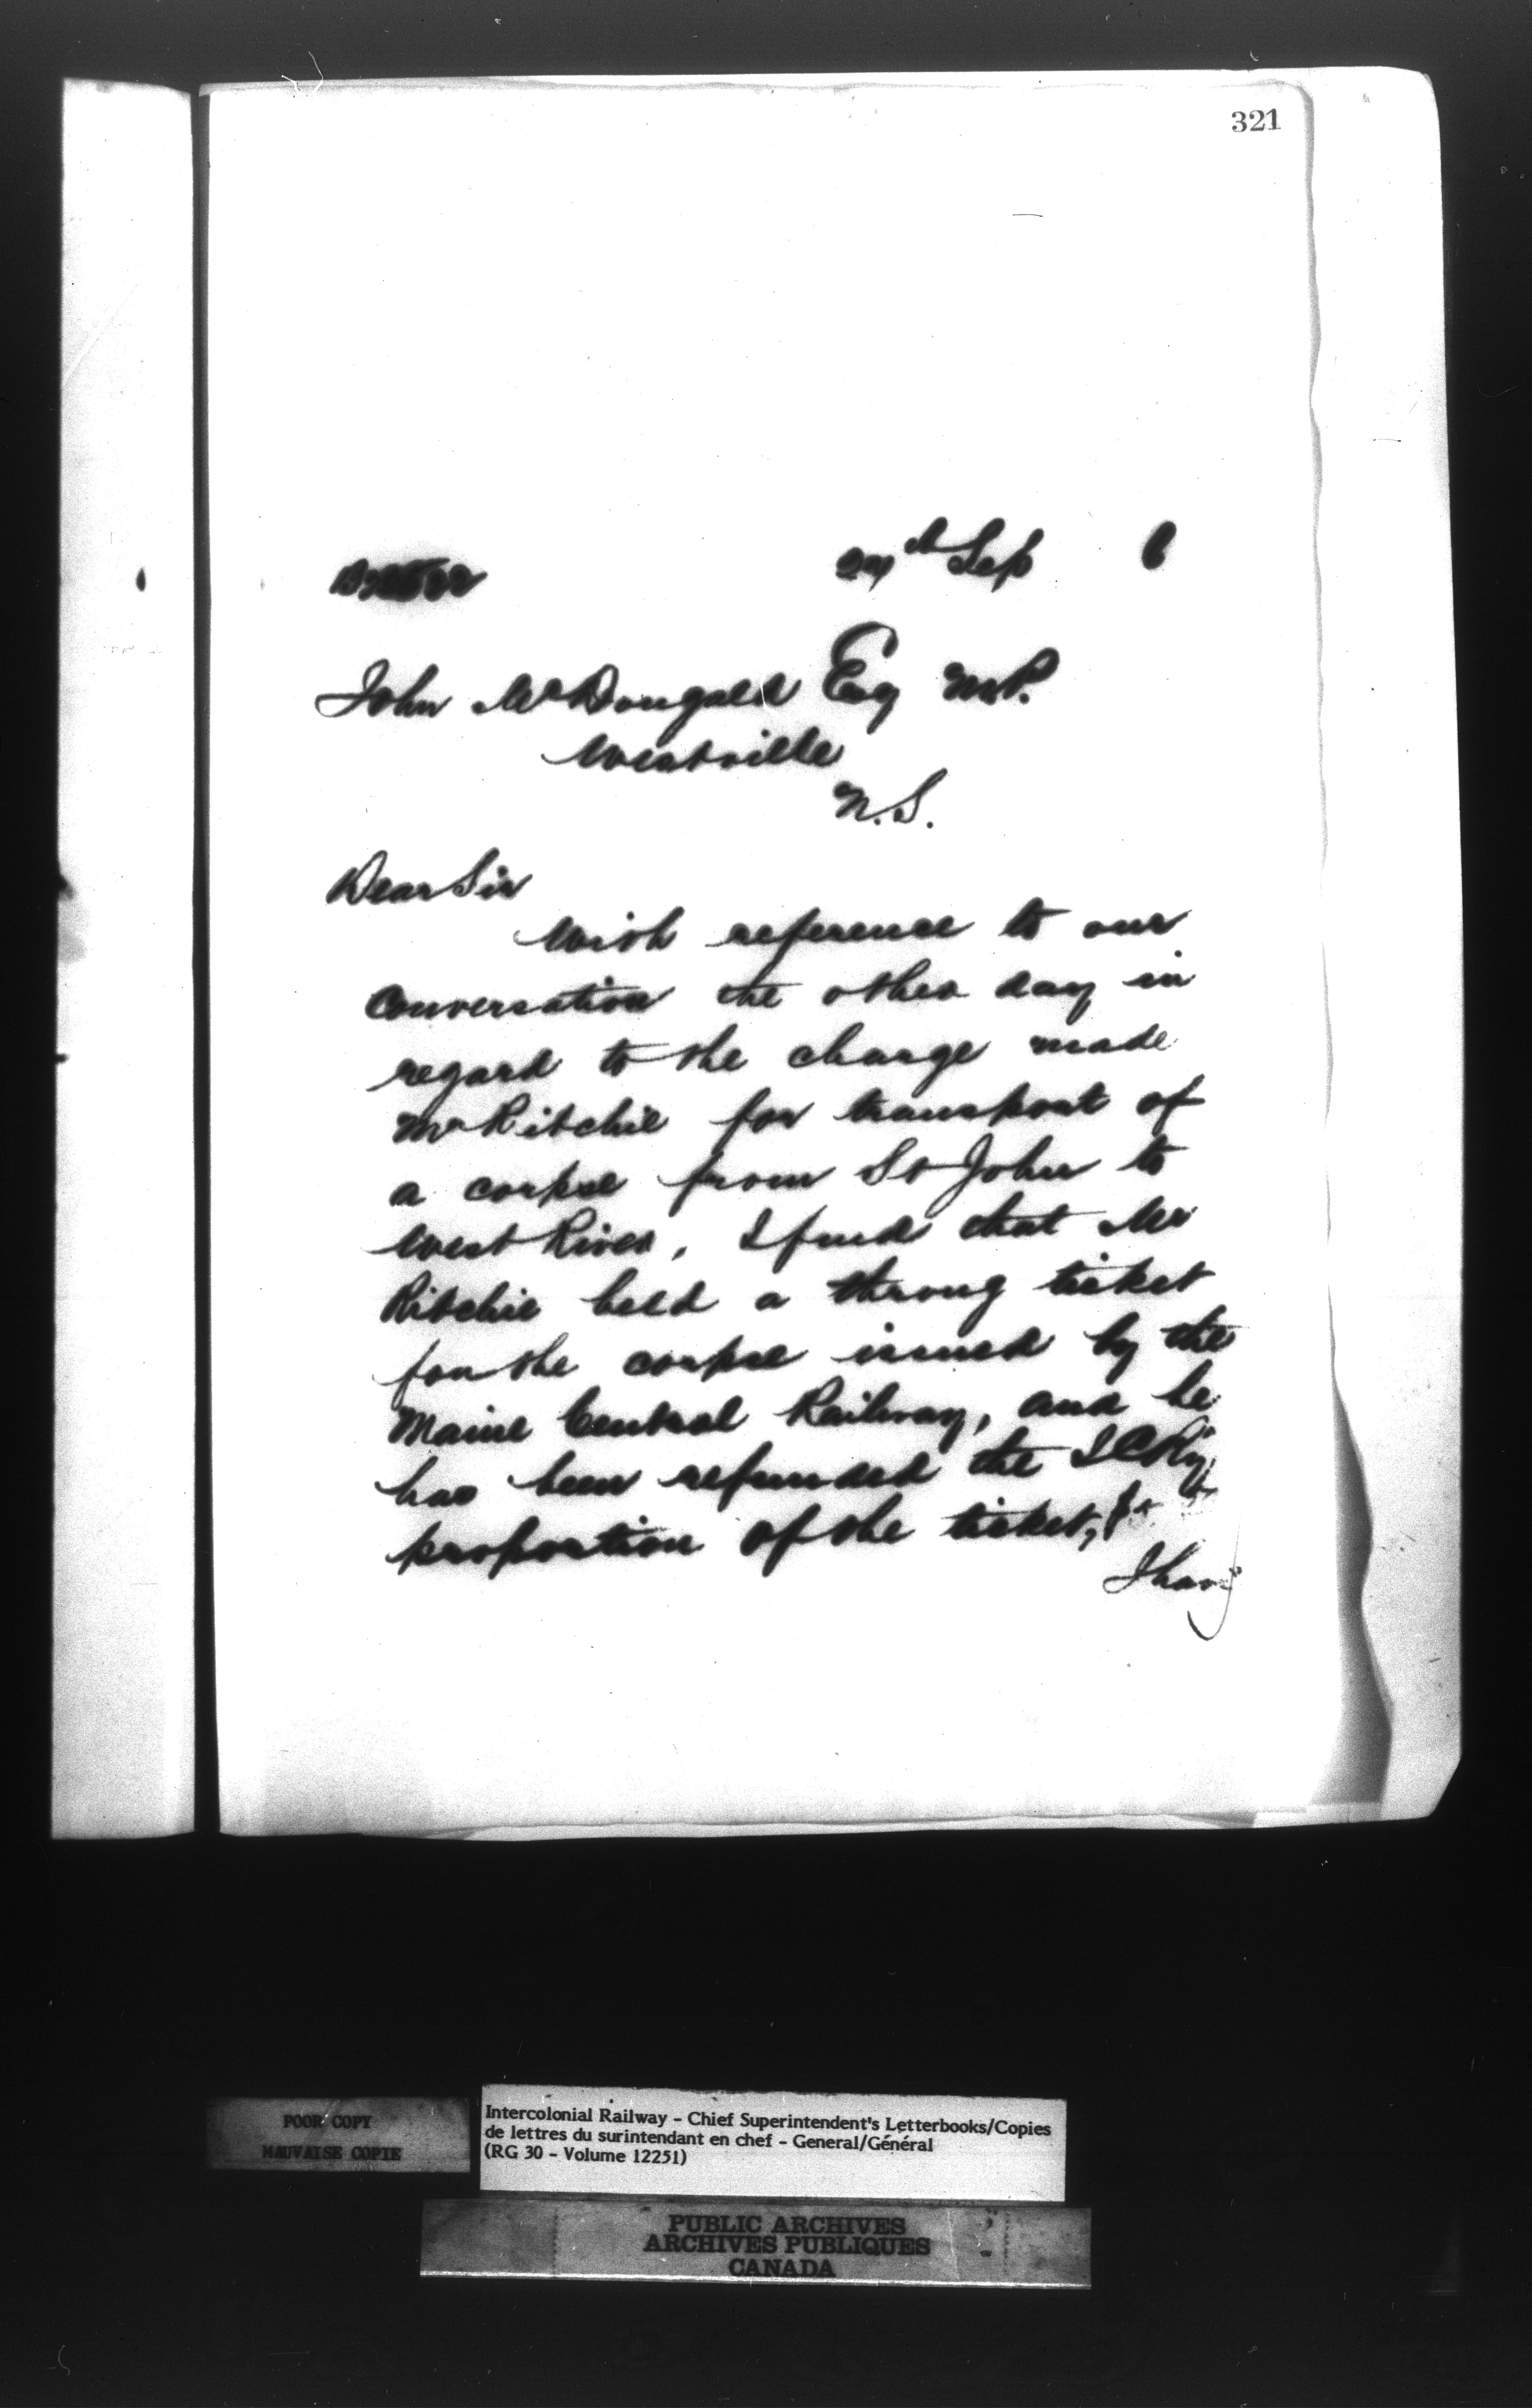 321
27th Sep 6
John McDougald Esq M.P.
Westville
N.S.
Dear Sir
With reference to our
conversation the other day in
regard to the charge made
Mr Ritchie for transport of
a corpse from St John to
West River, I find that Mr
Ritchie held a throug ticket
for the corpse issued by the
Maine Central Railway, and he
has been refunded the I C Ry
proportion of the ticket,
I have
POOR COPY
MAUVAISE COPIE
Intercolonial Railway - Chief Superintendent's Letterbooks/Copies
de lettres du surintendant en chef - General/Général
(RG 30 - Volume 12251)
PUBLIC ARCHIVES
ARCHIVES PUBLIQUES
CANADA